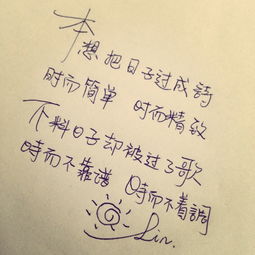 本想把日子过成詩
时而简单 时而精致
不料日子却被过了歌
時而不靠谱 時而不着調
Lin.